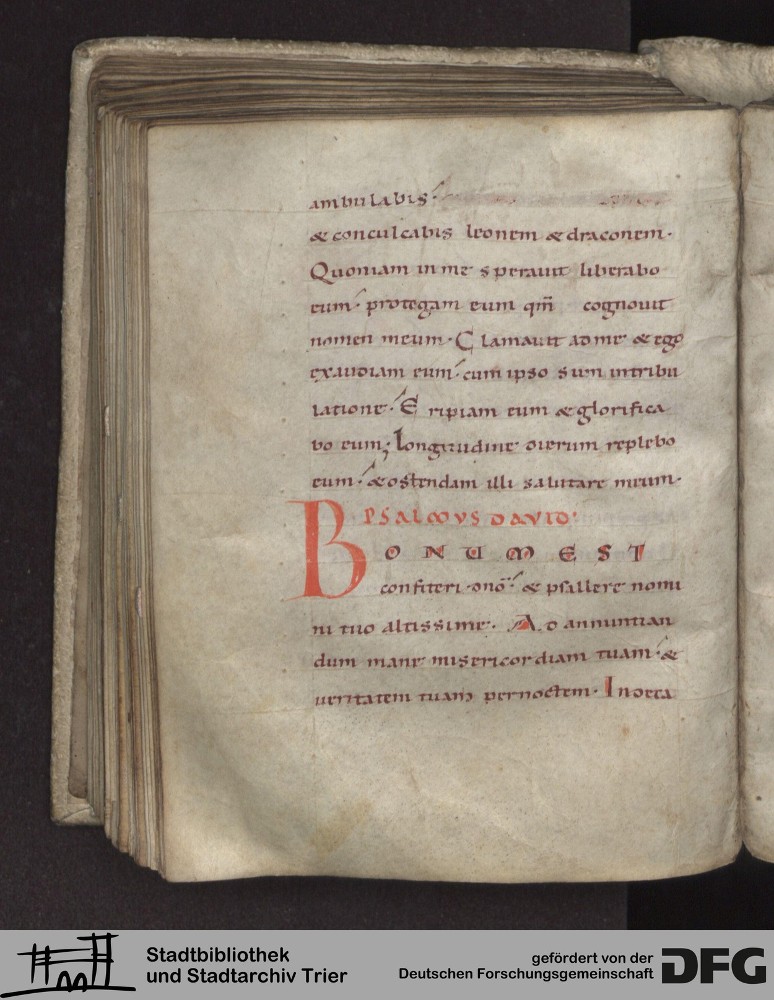 ambulabis:
& conculcabis leonem & draconem·
Quoniam in me sperauit liberabo
eum· protegam eum qm̄ cognouit
nomen meum· Clamauit ad me & ego
exaudiam eum· cum ipso sum in tribu
latione· Eripiam eum & glorifica
bo eum; longitudine dierum replebo
eum· & ostendam illi salutare meum·
PSALMUS DAVID:
BONUM EST
confiteri dnō· & psallere nomi
ni tuo altissime· Ad annuntian
dum mane misericordiam tuam· &
ueritatem tuam per noctem· In deca
Stadtbibliothek
und Stadtarchiv Trier
gefördert von der
Deutschen Forschungsgemeinschaft
DFG